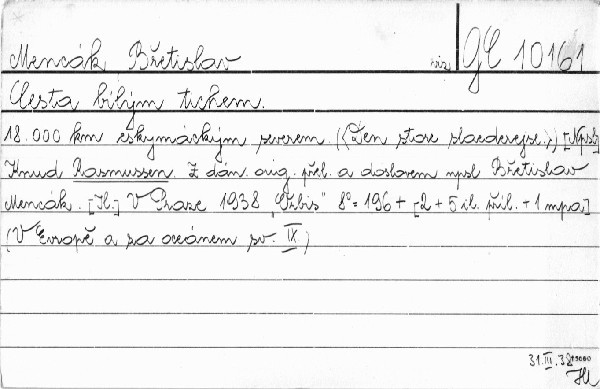 Mencák Břetislav viz GE 10161
Cesta bílým tichem.
18.000 km eskymáckým severem. (《Den store slaederejse.》) [Npsb]
Knud Rasmussen. Z dán. orig. přel. a doslovem npsl Břetislav
Mencák. [Il.] V Praze 1938 „Orbis" 8° 196 + [2 + 5 il. příl. + 1 mpa.]
(V Evropě a za oceánem sv. IX)
31. III. 38